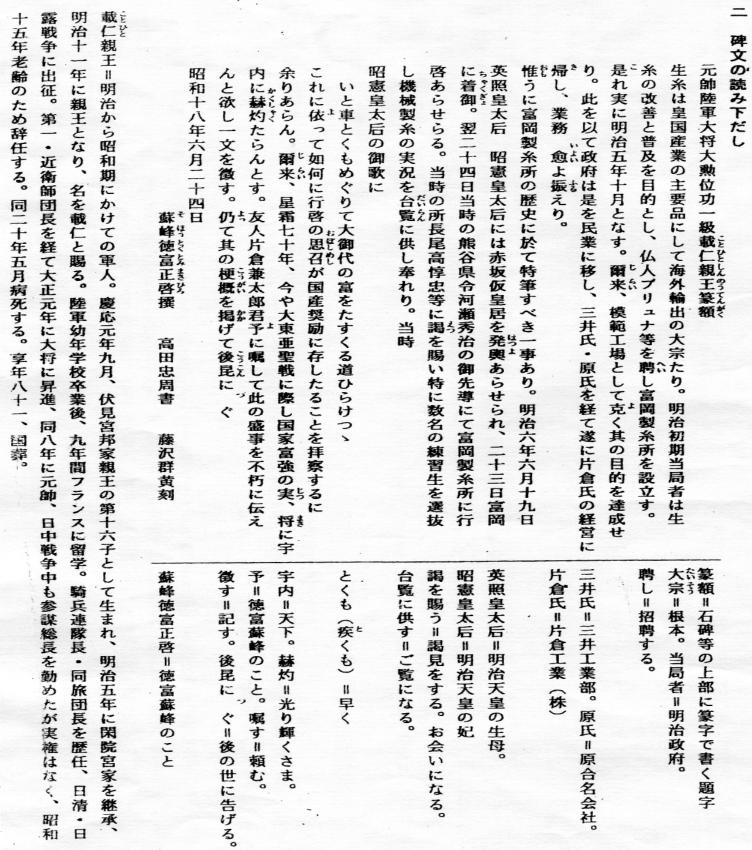 二　碑文の読み下だし
元帥陸軍大将大勲位功一級載仁親王篆額
生糸は皇国産業の主要品にして海外輸出の大宗たり。明治初期当局者は生
糸の改善と普及を目的とし、仏人ブリュナ等を聘し富岡製糸所を設立す。
是れ実に明治五年十月となす。爾来、模範工場として克く其の目的を達成せ
り。此を以て政府は是を民業に移し、三井氏・原氏を経て遂に片倉氏の経営に
帰し、業務　愈よ振えり。
惟うに富岡製糸所の歴史に於て特筆すべき一事あり。明治六年六月十九日
英照皇太后　昭憲皇太后には赤坂仮皇居を発輿あらせられ、二十三日富岡
に着御。翌二十四日当時の熊谷県令河瀬秀治の御先導にて富岡製糸所に行
啓あらせらる。当時の所長尾高惇忠等に謁を賜い特に数名の練習生を選抜
し機械製糸の実況を台覧に供し奉れり。当時
昭憲皇太后の御歌に
いと車とくもめぐりて大御代の富をたすくる道ひらけつゝ
これに依って如何に行啓の思召が国産奨励に存したることを拝察するに
余りあらん。爾来、星霜七十年、今や大東亜聖戦に際し国家富強の実、将に宇
内に赫灼たらんとす。友人片倉兼太郎君予に嘱して此の盛事を不朽に伝え
んと欲し一文を徴す。仍て其の梗概を掲げて後昆に　ぐ
昭和十八年六月二十四日
蘇峰徳富正啓撰　高田忠周書　藤沢群黄刻
篆額＝石碑等の上部に篆字で書く題字
大宗＝根本。当局者＝明治政府。
聘し＝招聘する。
三井氏＝三井工業部。原氏＝原合名会社。
片倉氏＝片倉工業（株）
英照皇太后＝明治天皇の生母。
昭憲皇太后＝明治天皇の妃
謁を賜う＝謁見をする。お会いになる。
台覧に供す＝ご覧になる。
とくも（疾くも）＝早く
宇内＝天下。赫灼＝光り輝くさま。
予＝徳富蘇峰のこと。嘱す＝頼む。
徴す＝記す。後昆に　ぐ＝後の世に告げる。
蘇峰徳富正啓＝徳富蘇峰のこと
載仁親王＝明治から昭和期にかけての軍人。慶応元年九月、伏見宮邦家親王の第十六子として生まれ、明治五年に閑院宮家を継承、
明治十一年に親王となり、名を載仁と賜る。陸軍幼年学校卒業後、九年間フランスに留学。騎兵連隊長・同旅団長を歴任、日清・日
露戦争に出征。第一・近衛師団長を経て大正元年に大将に昇進、同八年に元帥、日中戦争中も参謀総長を勤めたが実権はなく、昭和
十五年老齢のため辞任する。同二十年五月病死する。享年八十一、国葬。